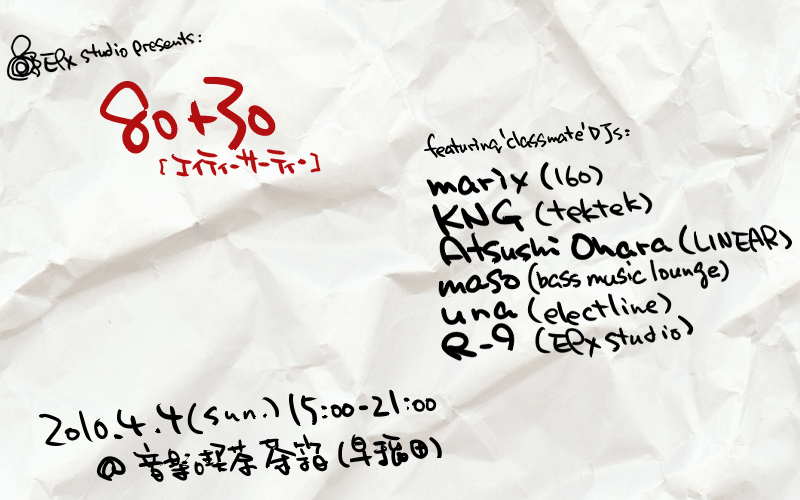 EPX studio presents:
80+30
[エイティーサーティー]
featuring 'classmate' DJs:
marix (160)
KNG (tektek)
Atsushi Ohara (LINEAR)
maso (bass music lounge)
una (electline)
R-9 (EPX studio)
2010.4.4 (sun.) 15:00-21:00
@ 音楽喫茶 茶箱 (早稲田)